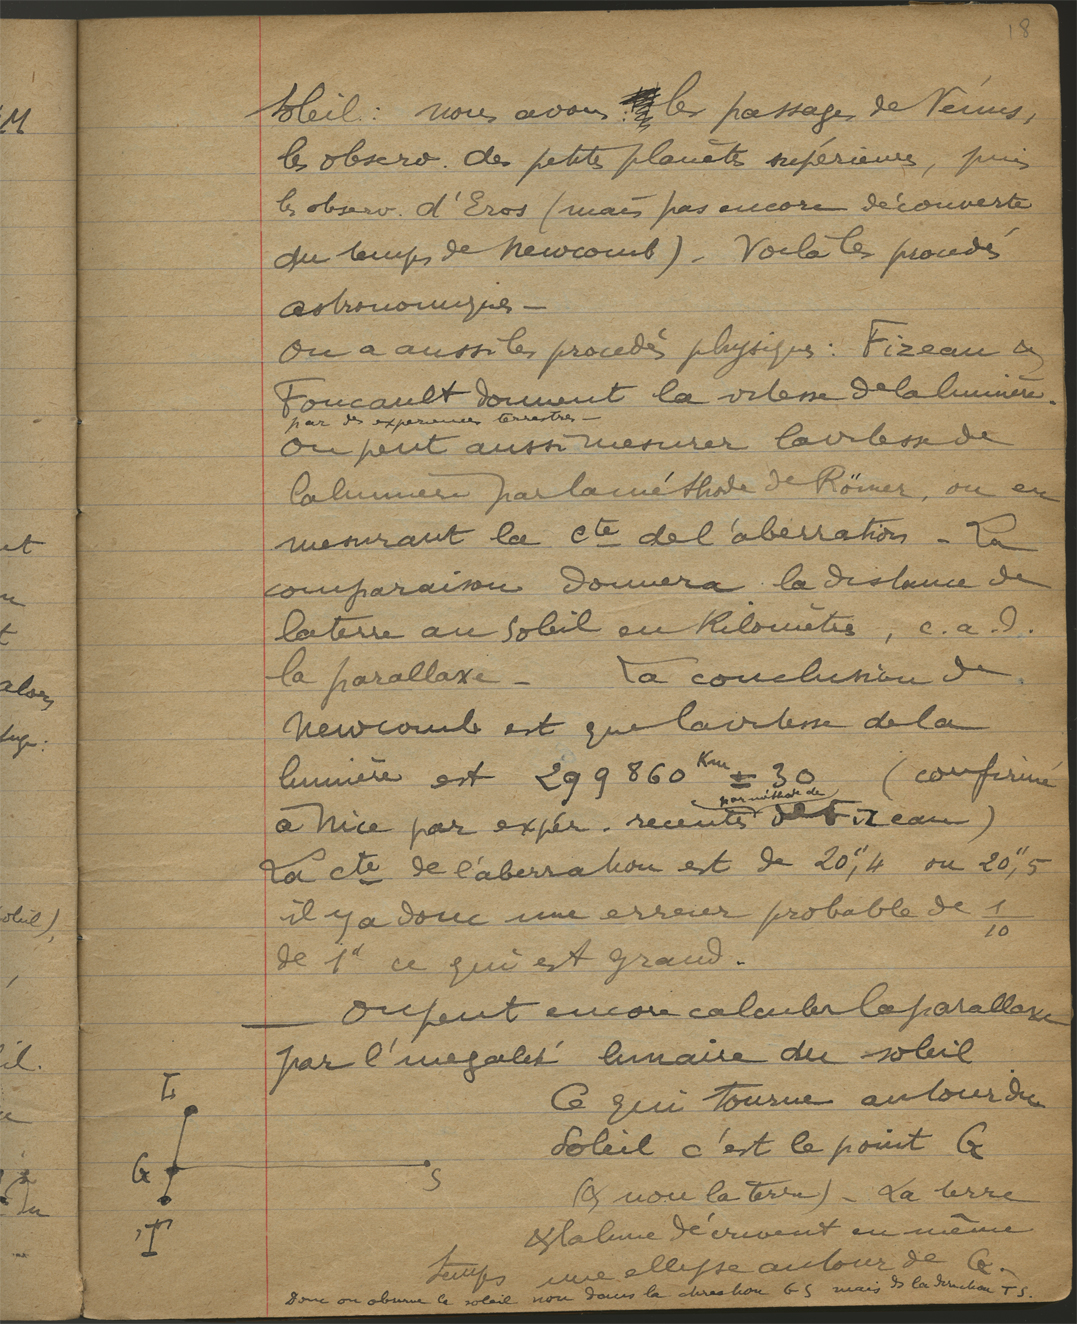 18
Soleil : nous avons les passages de Vénus,
les observ. des petites planètes supérieures, puis
les observ. d'Eros (mais pas encore découverte
du temps de Newcomb). Voilà les procédés
astronomiques —
On a aussi les procédés physiques : Fizeau &
Foucault donnent la vitesse de la lumière.
par des expériences terrestres —
On peut aussi mesurer la vitesse de
la lumière par la méthode de Römer, ou en
mesurant la cte de l'aberration - La
comparaison donnera la distance de
la terre au Soleil en Kilomètres, c. a. d.
la parallaxe — La conclusion de
Newcomb est que la vitesse de la
lumière est 299860 Km ± 30 (confirmé
par méthode de
à Nice par expér. récentes de Fizeau)
La cte de l'aberration est de 20",4 ou 20",5
il y a donc une erreur probable de 1/10
de 1" ce qui est grand.
— On peut encore calculer la parallaxe
par l'inégalité lunaire du soleil
Ce qui tourne autour du
Soleil c'est le point G
(& non la terre) - La terre
& la lune décrivent en même
temps une ellipse autour de G -
Donc on observe le soleil non dans la direction GS mais ds la direction TS.
L
G
S
T